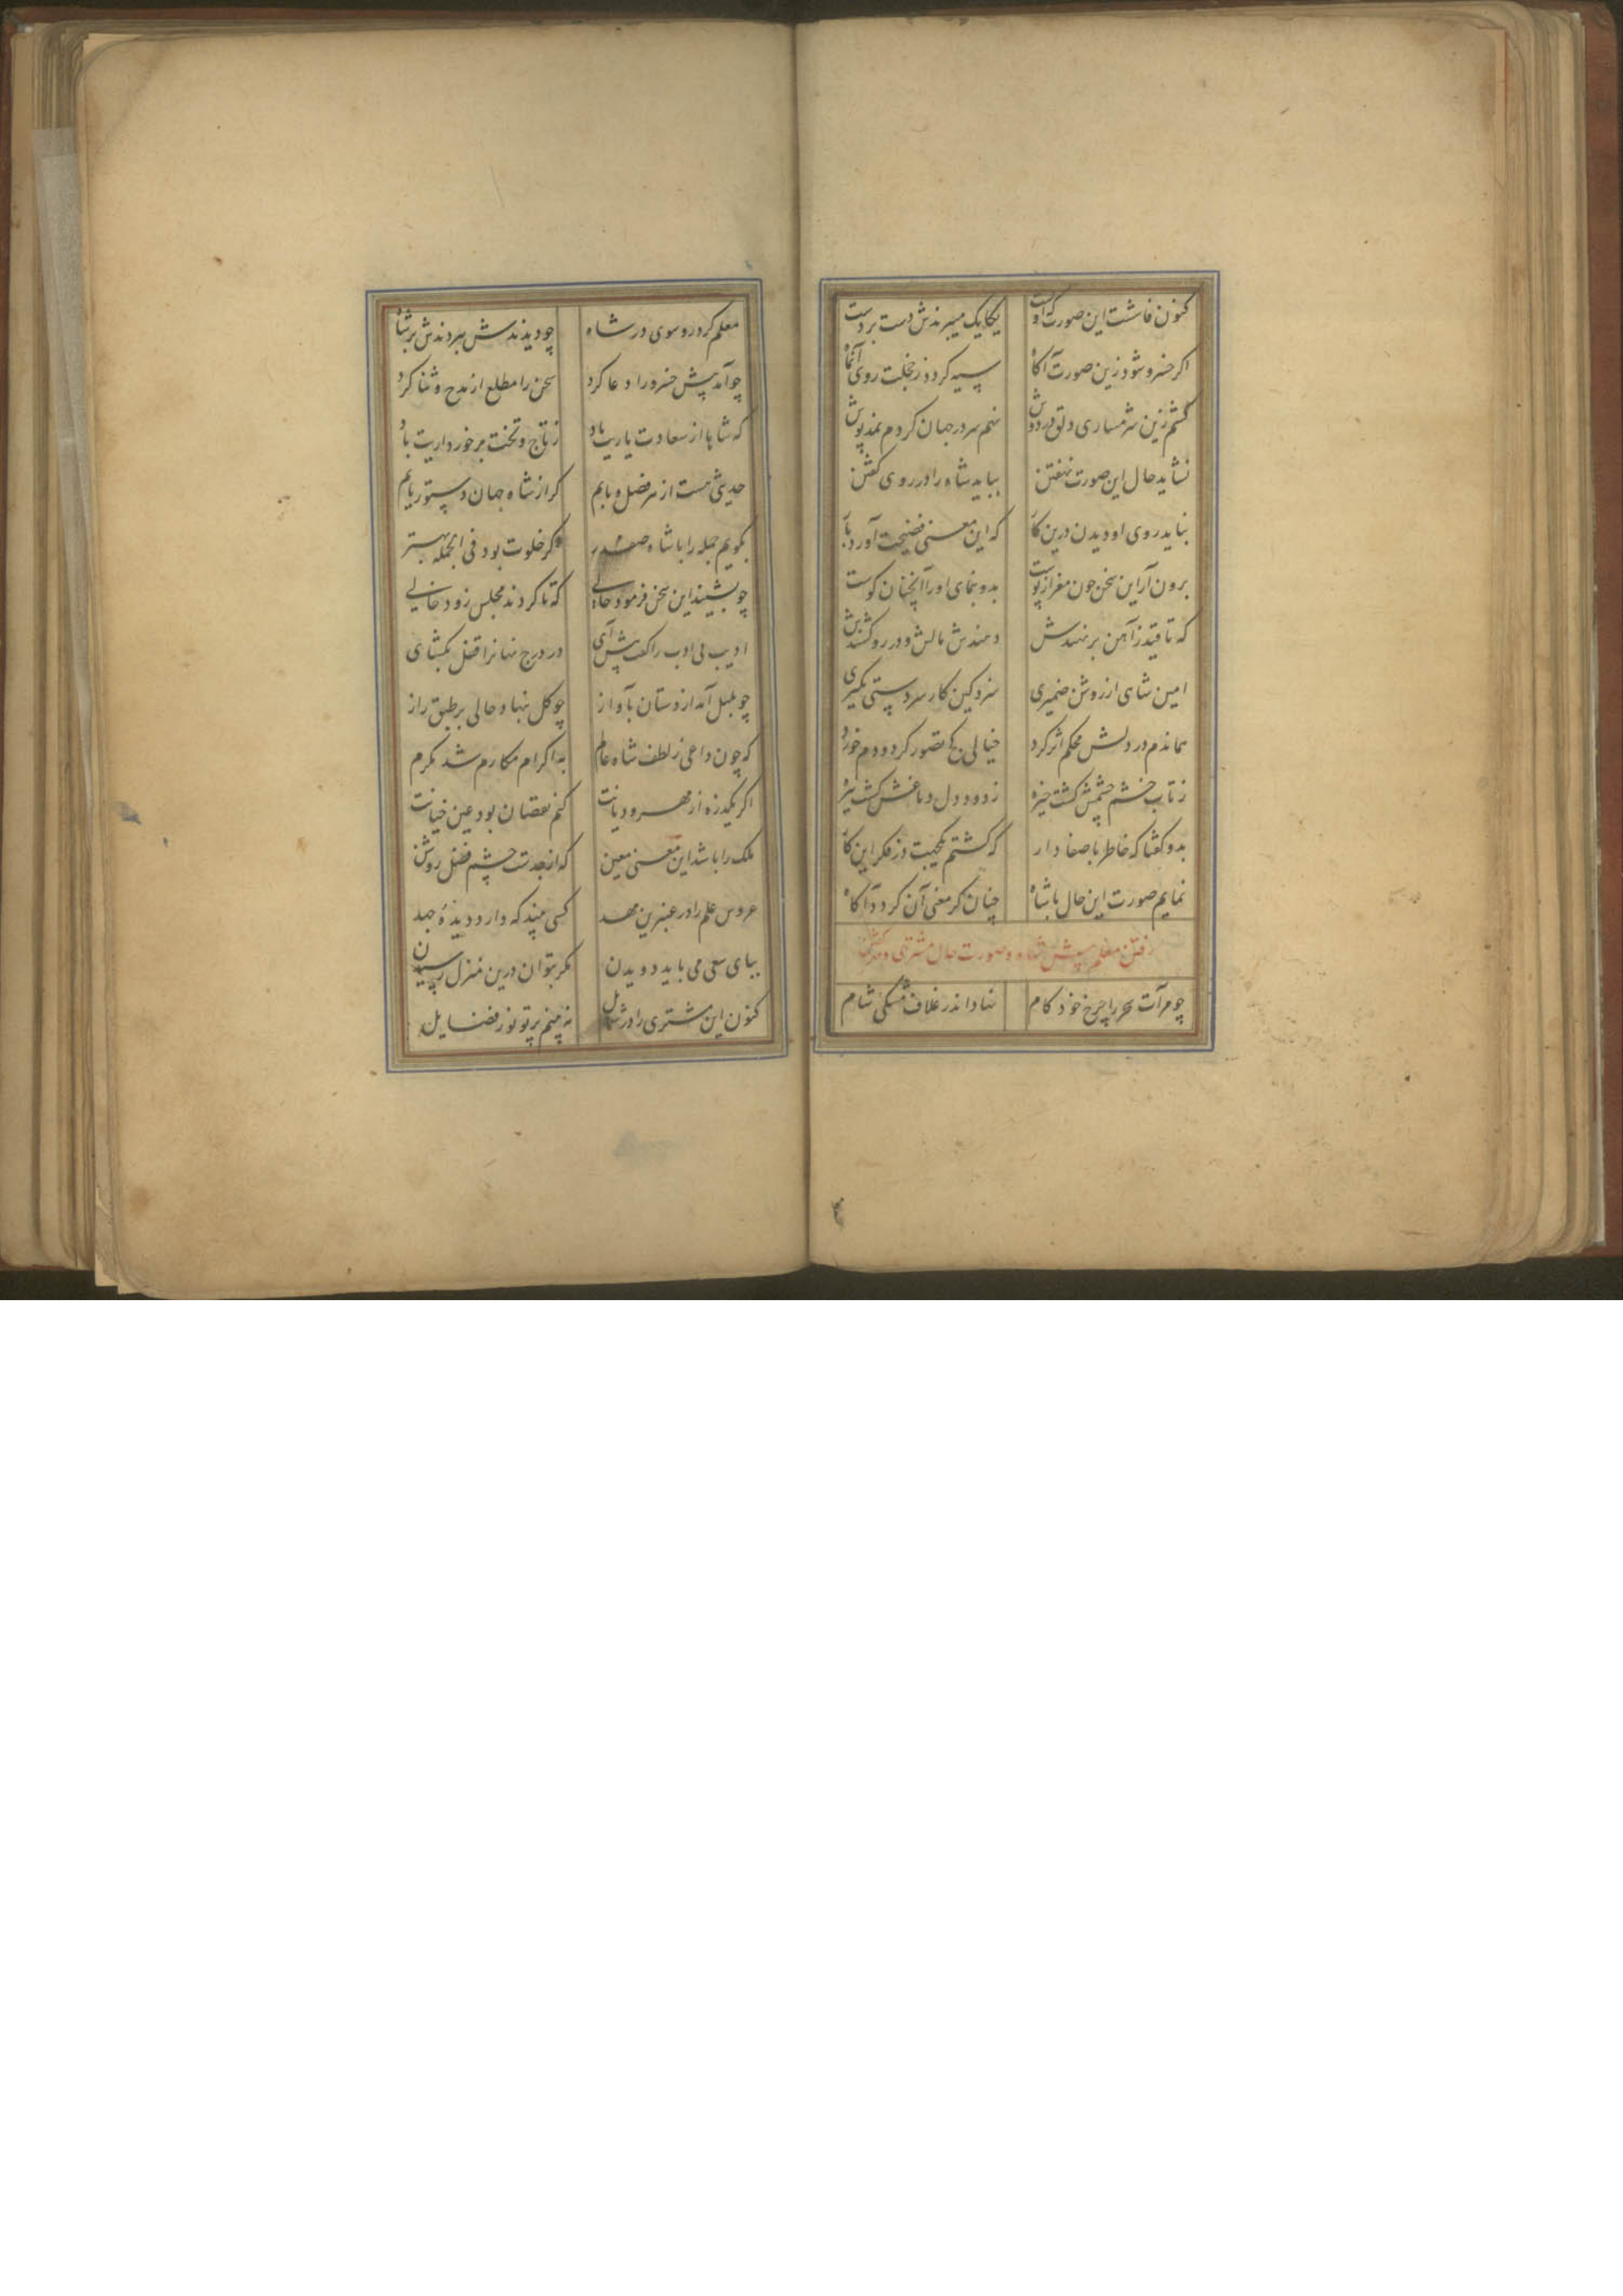 کنون فاشست این صورت که او هست یکایک میبرندش دست بر دست
اکر خسرو شود زین صورت آکاه سیه کردد ز خجلت روی آنماه
کشم زین شرمساری دلق در دوش نهم سر در جهان کردم نمد پوش
نشاید حال این صورت نهفتن بباید شاه را در روی کفتن
نباید روی او دیدن درین کار که این معنی فضیحت آورد بار
برون آر این سخن چون مغز از پوست بدو بنمای او را آنچنان کوست
که تا قید از آهن بر نهندش دهندش مالش و در رو کشندش
امین شاهی از روشن ضمیری سزد کین کار سردستی نکیری
بماندم در دلش محکم اثر کرد خیالی کج تصور کرد و دم خورد
ز تاب خشم چشمش کشت خیره ز دود دل دماغش کشت تیره
بدو کفتا که خاطر با صفا دار که کشتم یکجهت در فکر این کار
نمایم صورت این حال با شاه چنان کز معنی آن کردد آکاه
رفتن معلم پیش شاه و صورت حال مشتری و مهر کفتن
چو مرآت سحر را چرخ خود کام نهاد اندر غلاف مشکی شام
معلم کرد رو سوی در شاه چو دیدندش ببردندش بر شاه
چو آمد پیش خسرو را دعا کرد سخن را مطلع از مدح و ثنا کرد
که شاها از سعادت یاریت باد ز تاج و تخت برخورداریت باد
حدیثی هست از سر فضل و بابم کر از شاه جهان دستور یابم
بکویم جمله را با شاه صفدر وکر خلوت بود فی الجمله بهتر
چو بشنید این سخن فرمود حالی که تا کردند مجلس زود خالی
ادیب بی ادب را کفت پیش آی در درج نهانرا قفل بکشای
چو بلبل آمد از دستان بآواز چو کل بنهاد حالی بر طبق راز
که چون داعی ز لطف شاه عالم به اکرام مکارم شد مکرم
اکر یکذره از مهر و دیانت کنم نقصان بود عین خیانت
ملک را باشد این معنی معین که از جدت چشم فضل روشن
عروس علم را در عنبرین مهد کسی بیند که دارد دیده جهد
بپای سعی می باید دویدن مکر بتوان درین منزل رسیدن
کنون این مشتری را در شمایل نه بینم پرتو نور فضایل